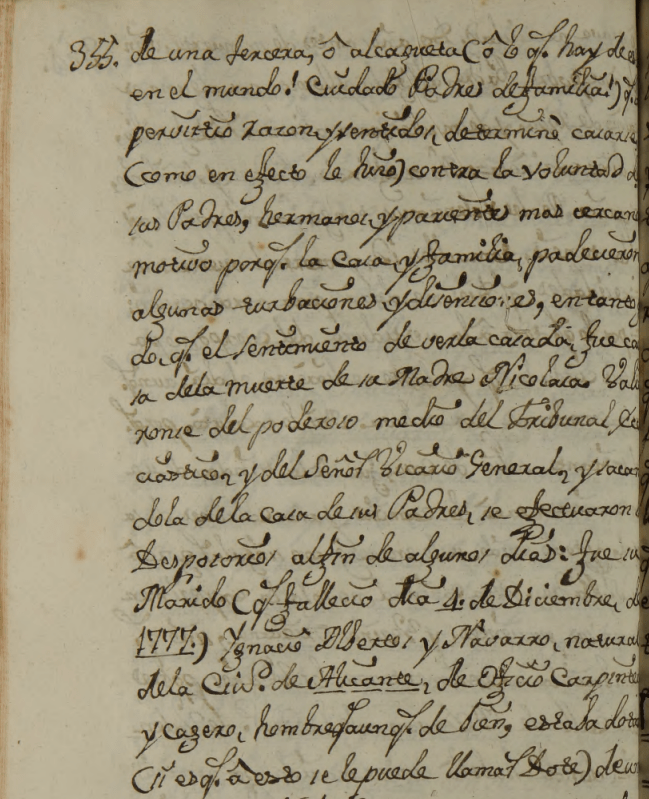 355. de una tercera, ô alcagueta (ô lo q.e hay de
en el mundo! Cuidado Padres de familia!)
pervirtio razon, y sentidos, determinè casarse
(como en efecto le hizo) contra la voluntad
sus Padres, hermanos, y parientes mas cercan
motivo porq.e la casa, y familia, padecieron
algunas turbaciones, y disenciones, en tanto
do, q.e el sentimiento de verla casada, fue ca
sa dela muerte de sa Madre Nicolasa. Vali
ronse del poderoso medio del Tribunal Ec
ciastico, y del Señor Vicario General, y sacan
dola dela casa de sus Padres, se efectuaron
Desposorios al fin de algunos dias: fue su
Marido (q.e fallecio dia 4. de Diciembre, d
1777.) Ygnacio Albertos y Navarro, natura
dela Ciu.d de Alicante, de oficio Carpinte
y cagero, hombre, aunq.e de bien, estaba dota
(si es q.e â esto se le puede llamar Dote) de